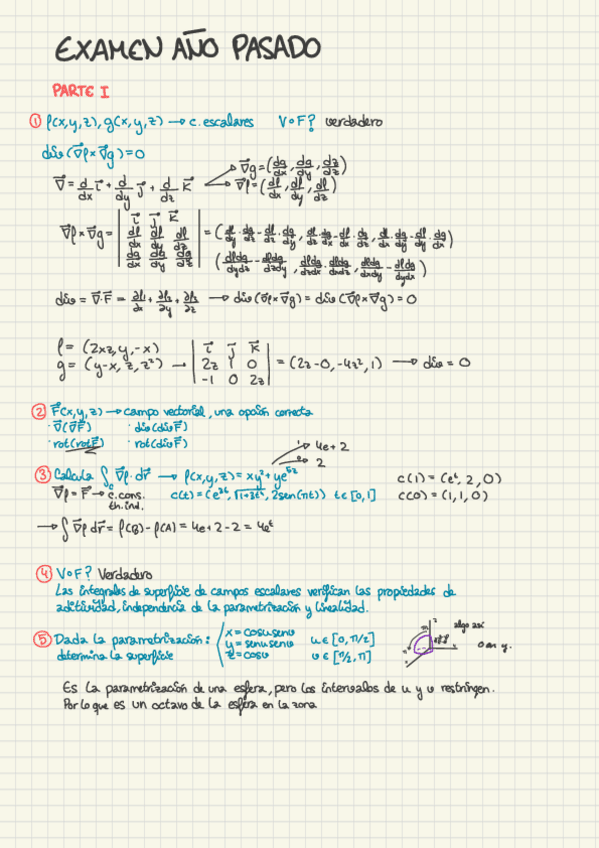 EXAMEN AÑO PASADO
PARTE I
① f(x,y,z), g(x,y,z) → c. escalares V o F? verdadero
div (∇f × ∇g) = 0
∇ = d/dx i + d/dy j + d/dz k
∇g = (dg/dx, dg/dy, dg/dz)
∇f = (df/dx, df/dy, df/dz)
∇f × ∇g = | i j k | df/dx df/dy df/dz | dg/dx dg/dy dg/dz | = (df/dy · dg/dz - df/dz · dg/dy, df/dz · dg/dx - df/dx · dg/dz, df/dx · dg/dy - df/dy · dg/dx)
div = ∇·F = ∂f₁/∂x + ∂f₂/∂y + ∂f₃/∂z → div (∇f × ∇g) = div (∇f × ∇g) = 0
f = (2xz, y, -x)
g = (y-x, z, z²) → | i j k | 2z 1 0 | -1 0 2z | = (2z-0, -4z², 1) → div = 0
② F(x,y,z) → campo vectorial, una opción correcta
· ∇(∇F) · div (div F)
· rot (rot F) · rot (div F)
③ Calcula ∫c ∇f · dr → f(x,y,z) = xy² + ye^(5z)
4e+2
2
∇f = F → c. cons. th. ind.
c(t) = (e^(3t), √(1+3t²), 2sen(πt)) t∈[0,1]
c(1) = (e^t, 2, 0)
c(0) = (1, 1, 0)
→ ∫ ∇f dr = f(B) - f(A) = 4e + 2 - 2 = 4e^t
④ V o F? Verdadero
Las integrales de superficie de campos escalares verifican las propiedades de
aditividad, independencia de la parametrización y linealidad.
⑤ Dada la parametrización: x = cosu senv u ∈ [0, π/2]
y = senu senv
determina la superficie z = cosv v ∈ [π/2, π]
algo así
Es la parametrización de una esfera, pero los intervalos de u y v restringen.
Por lo que es un octavo de la esfera en la zona